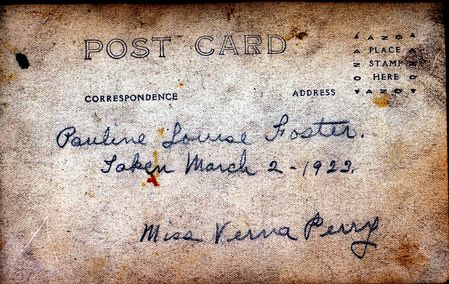 POST CARD
AZOA
PLACE
STAMP
HERE
AZOA
CORRESPONDENCE
ADDRESS
Pauline Louise Foster.
Taken March 2 - 1922.
Miss Verna Perry